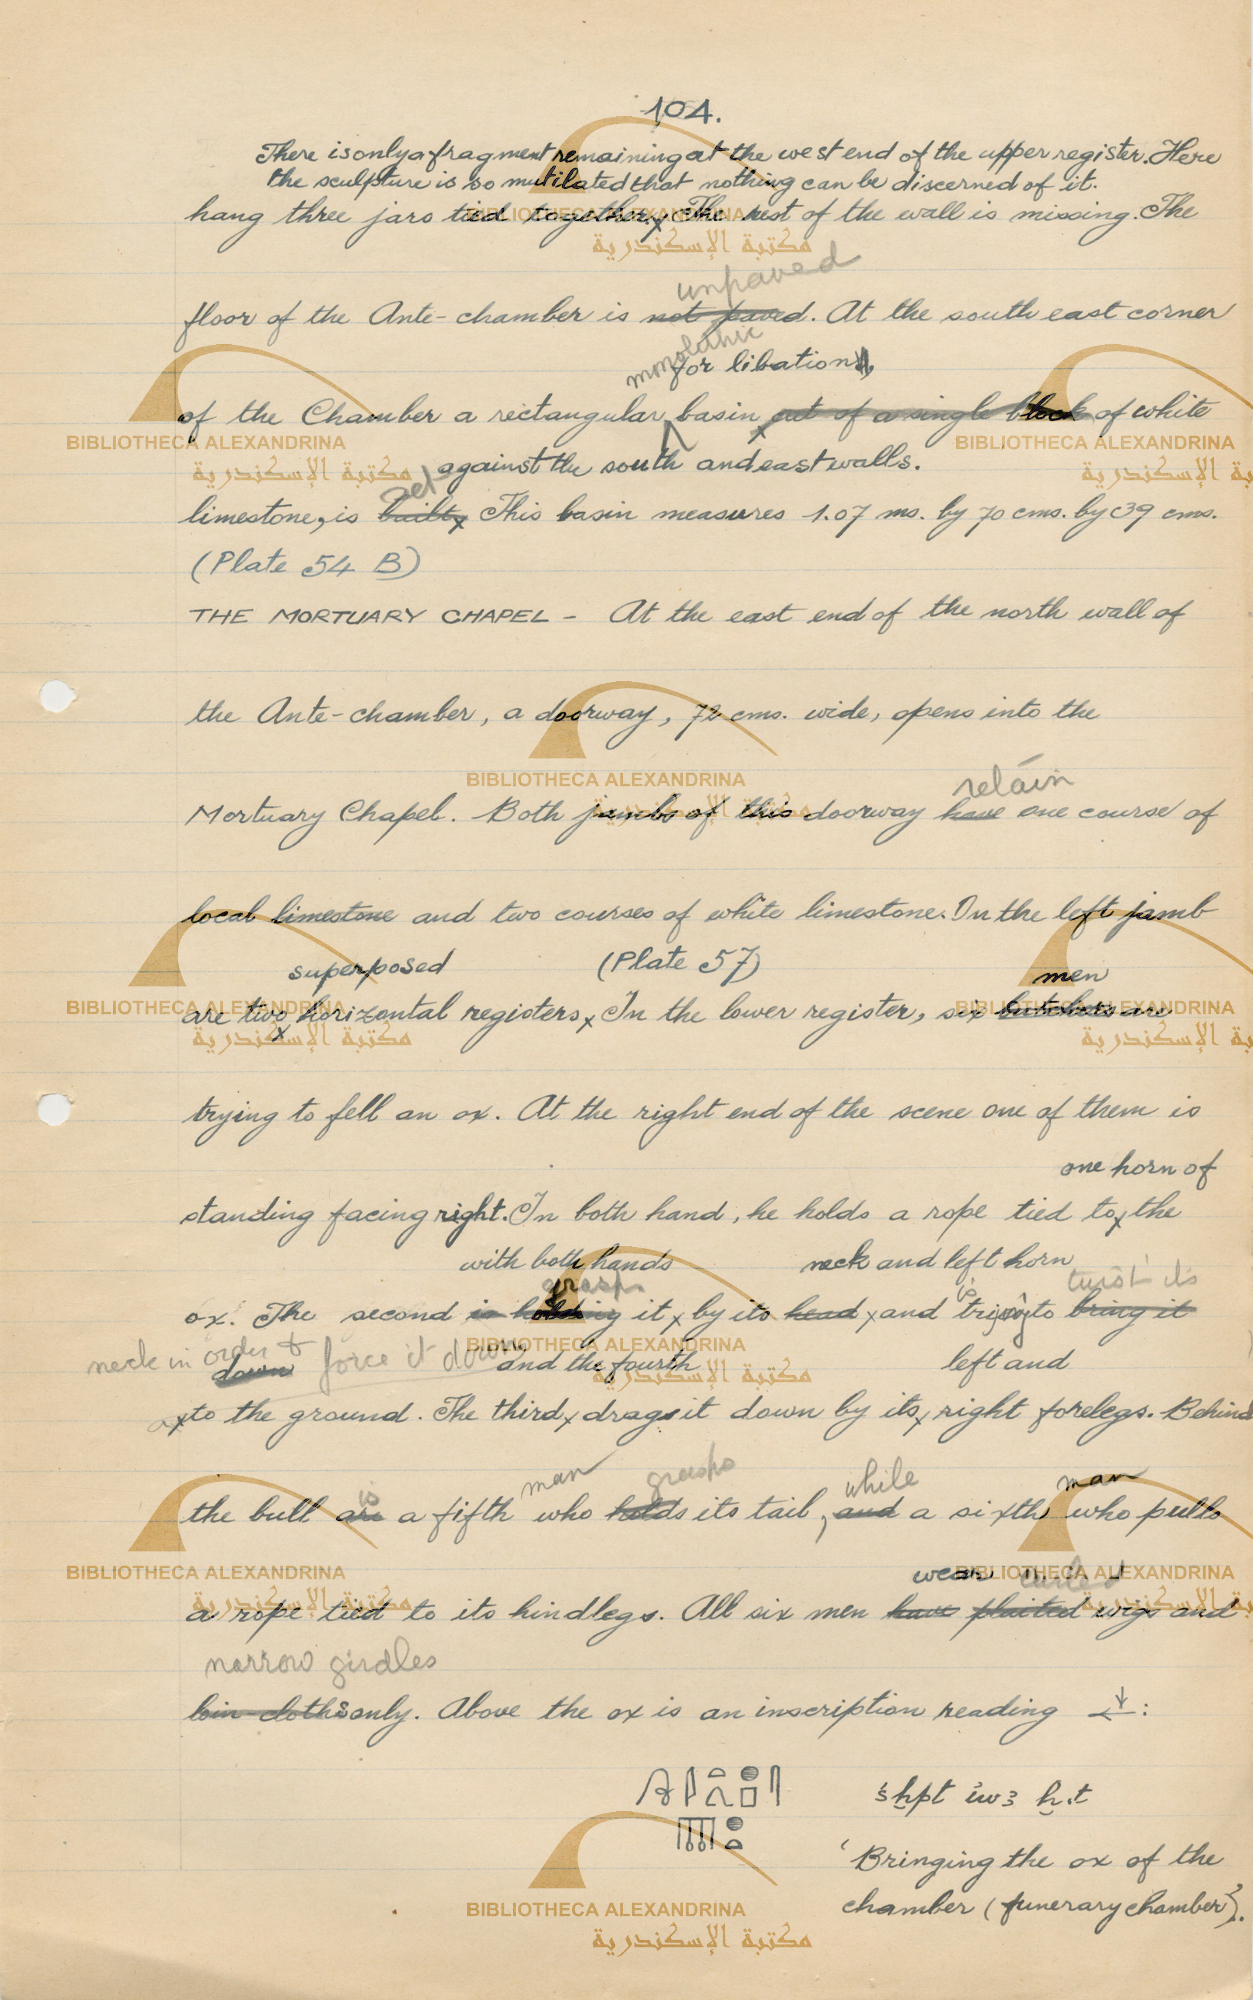 104.
There is only a fragment remaining at the west end of the upper register. Here
the sculpture is so mutilated that nothing can be discerned of it.
hang three jars tied together. x The rest of the wall is missing. The
unpaved
floor of the Ante-chamber is not paved. At the south east corner
monolithic
for libations,
of the Chamber a rectangular basin cut of a single block of white
set against the south and east walls.
limestone, is built x This basin measures 1.07 ms. by 70 cms. by 39 cms.
(Plate 54 B)
THE MORTUARY CHAPEL - At the east end of the north wall of
the Ante-chamber, a doorway, 72 cms. wide, opens into the
retain
Mortuary Chapel. Both jambs of this doorway have one course of
local limestone and two courses of white limestone. On the left jamb
superposed (Plate 57) men
are two x horizontal registers x In the lower register, six butchers are
trying to fell an ox. At the right end of the scene one of them is
one horn of
standing facing right. In both hand, he holds a rope tied to x the
with both hands neck and left horn
grasps is twist its
ox. The second is holding it x by its head x and trying to bring it
neck in order to force it down and the fourth left and
down
x to the ground. The third x drags it down by its x right forelegs. Behind
is man grasps while man
the bull are a fifth who holds its tail, and a sixth who pulls
wear curled
a rope tied to its hindlegs. All six men have plaited wigs and
narrow girdles
loin-cloths only. Above the ox is an inscription reading ↓←:
śḫpt ỉwꜣ ẖ.t
'Bringing the ox of the
chamber (funerary chamber)'.
BIBLIOTHECA ALEXANDRINA
مكتبة الإسكندرية
BIBLIOTHECA ALEXANDRINA
مكتبة الإسكندرية
BIBLIOTHECA ALEXANDRINA
مكتبة الإسكندرية
BIBLIOTHECA ALEXANDRINA
مكتبة الإسكندرية
BIBLIOTHECA ALEXANDRINA
مكتبة الإسكندرية
BIBLIOTHECA ALEXANDRINA
مكتبة الإسكندرية
BIBLIOTHECA ALEXANDRINA
مكتبة الإسكندرية
BIBLIOTHECA ALEXANDRINA
مكتبة الإسكندرية
BIBLIOTHECA ALEXANDRINA
مكتبة الإسكندرية
BIBLIOTHECA ALEXANDRINA
مكتبة الإسكندرية